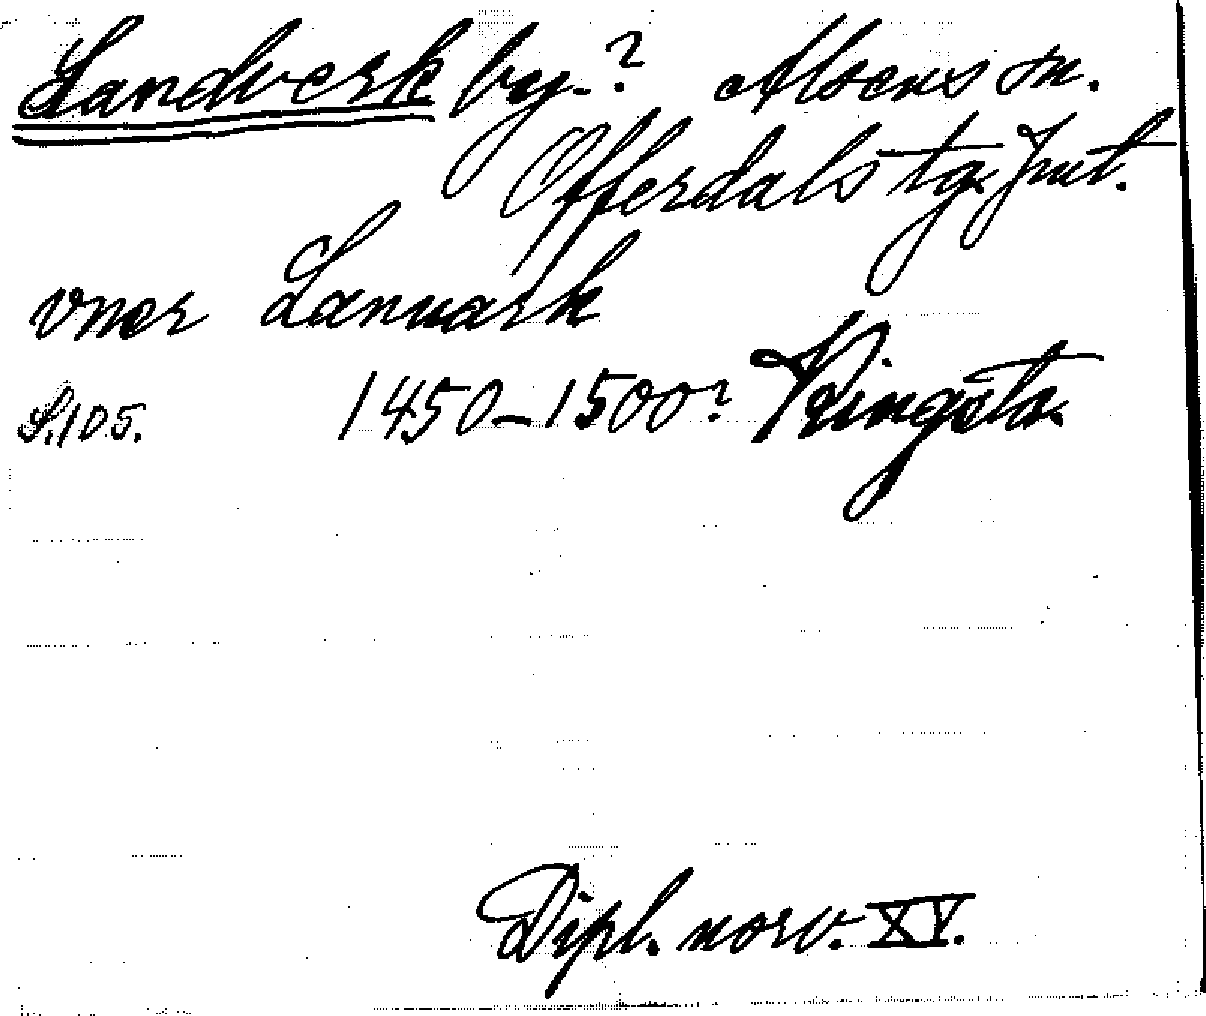 Landverk by.? Alsens sn.
Offerdals tg. Jmt.
vner Lanuark
S.105. 1450–1500? Ringsta.
Dipl. norv. XV.